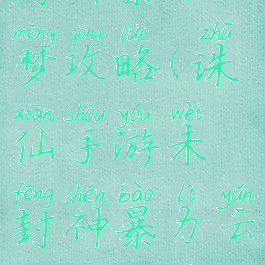 mèng gōng lüè zhū
梦攻略(诛
xiān shǒu yóu wèi
仙手游未
fēng shén bào lì yún
封神暴力云